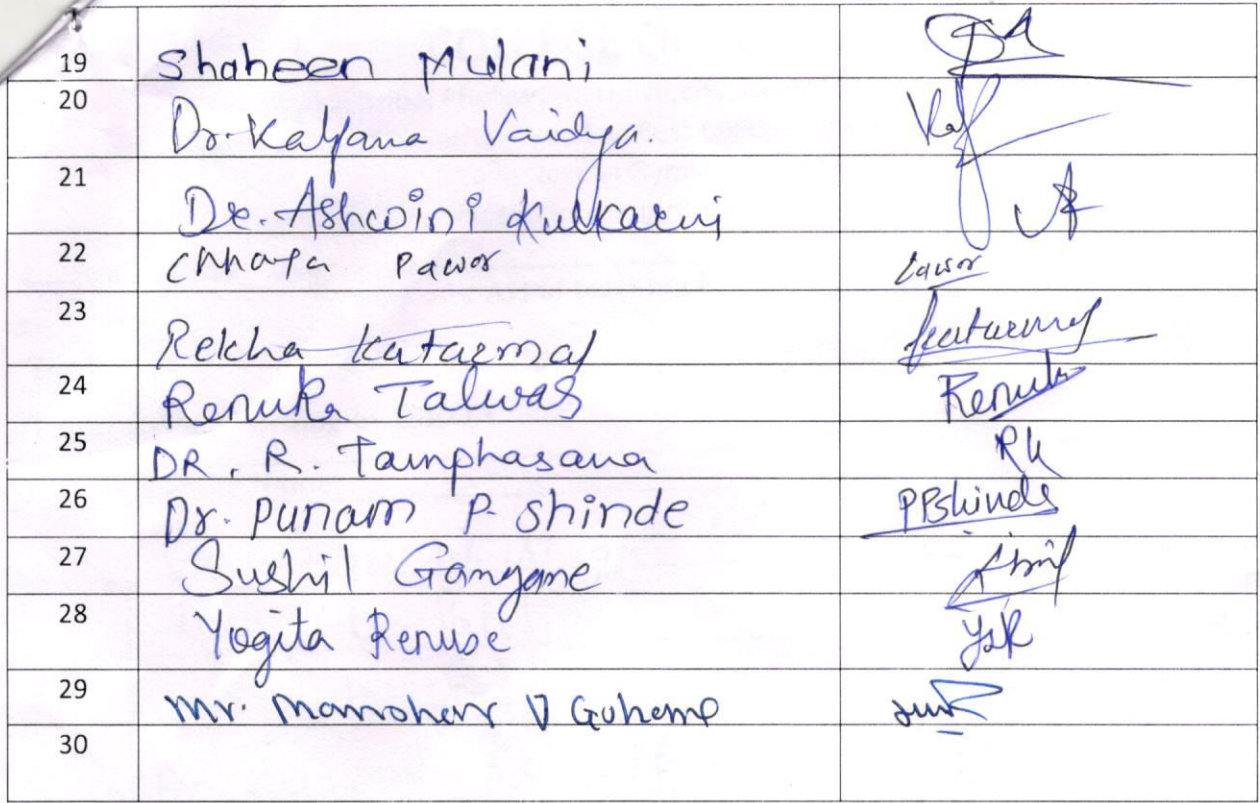 19 Shaheen Mulani
20 Dr. Kalpana Vaidya.
21 Dr. Ashwini Kulkarni
22 Chhaya Pawar Pawar
23 Rekha Katarmal Katarmal
24 Renuka Talwar Renuka
25 DR. R. Tamphasana RK
26 Dr. Punam P. Shinde PBShinde
27 Sushil Gangane
28 Yogita Renuse YSR
29 Mr. Manohar V
30